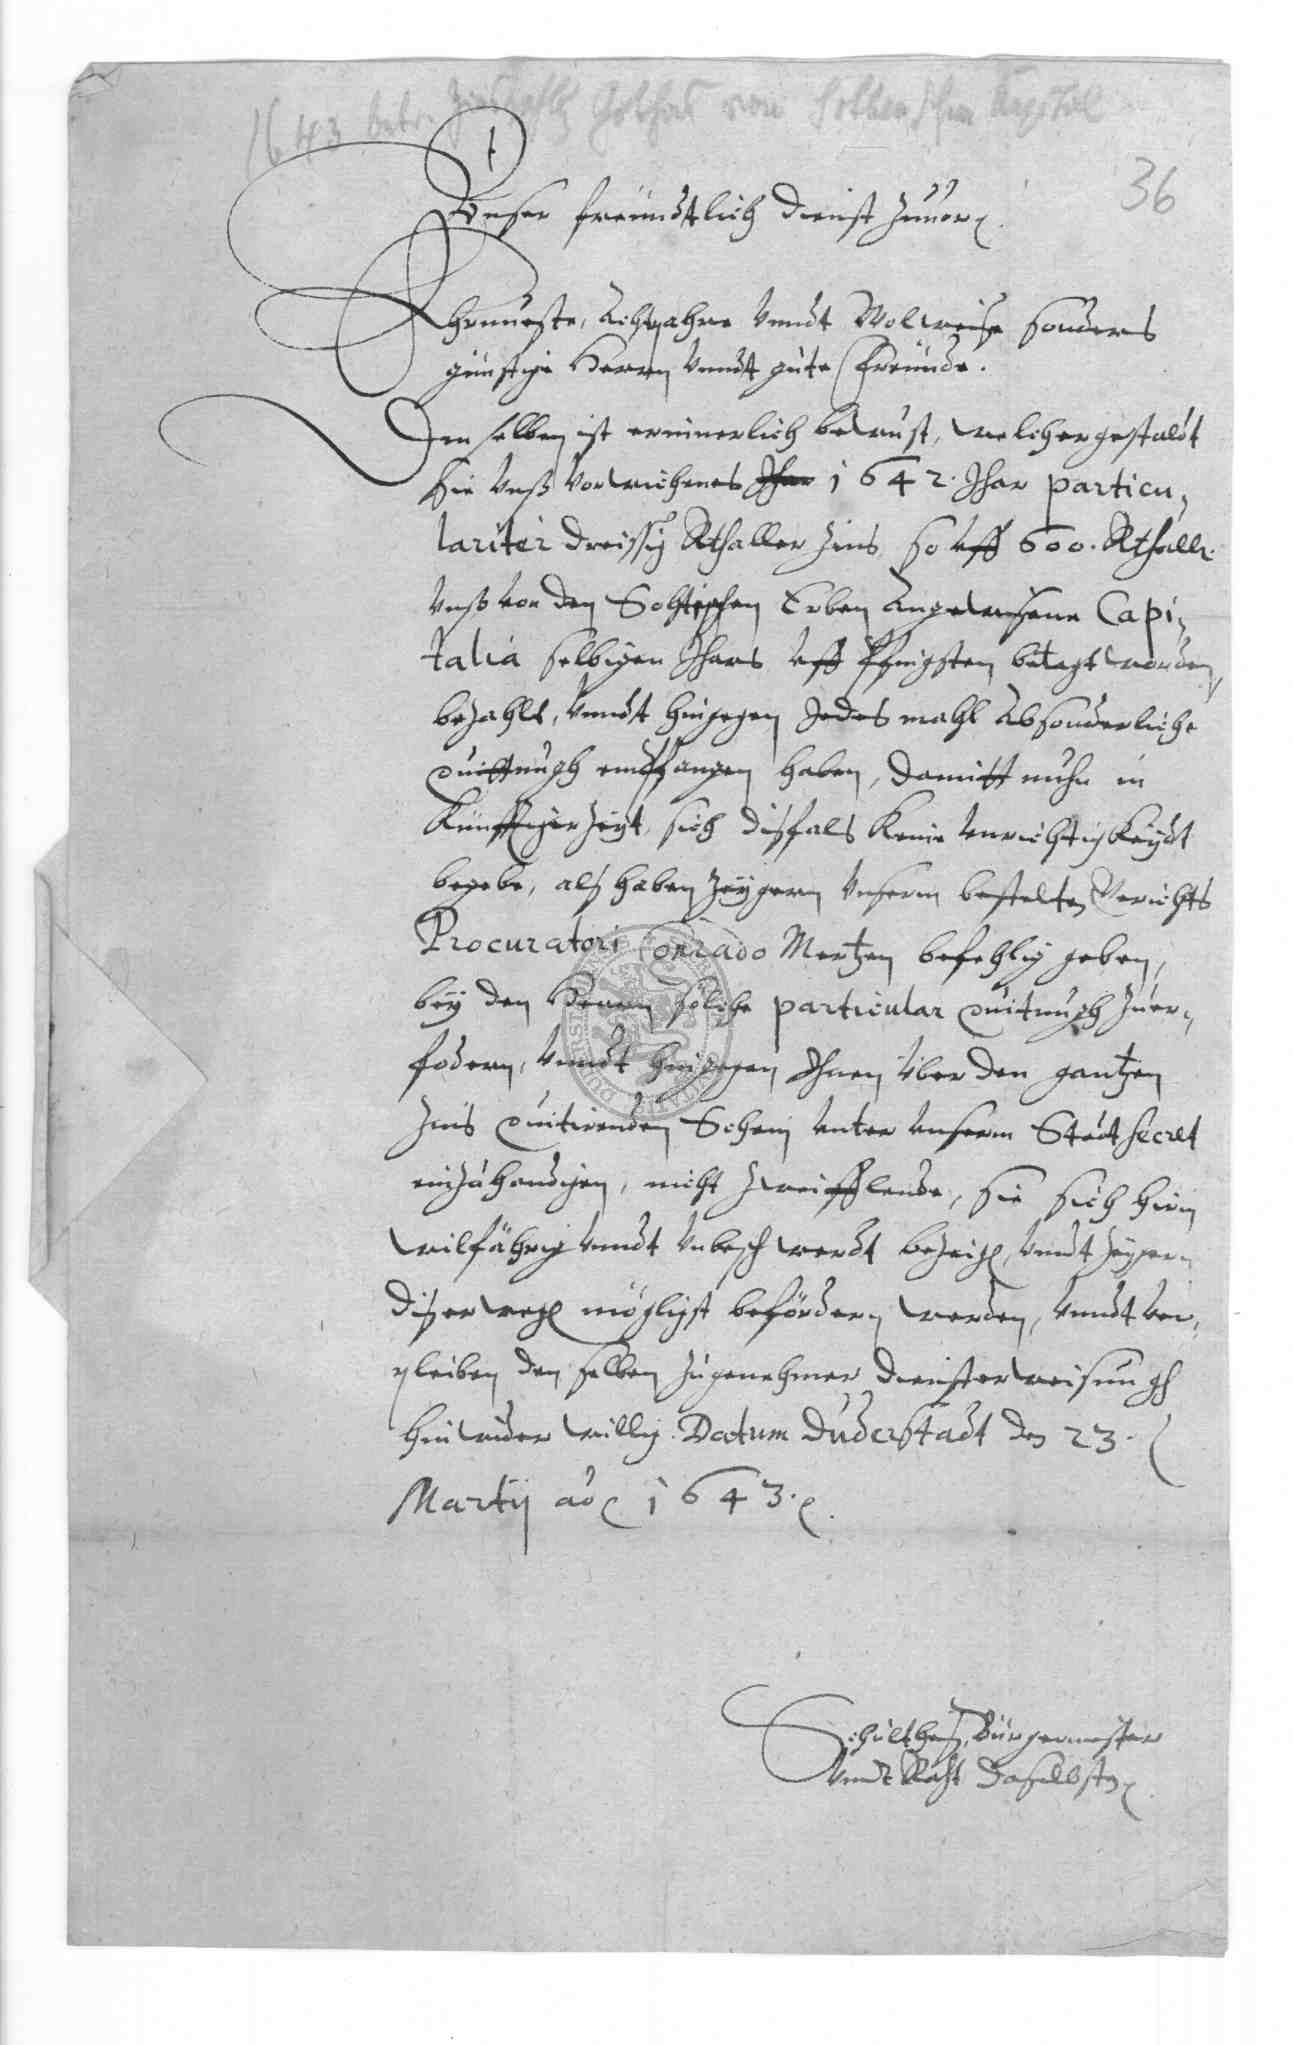 1643 betr. Gothas von Kapital
36
Vnser freündtlich dienst zuuor.
Ehrnueste, Achtpahre vnndt Wolweise sonders
günstige Herrn vnndt gute Freunde.
Denselben ist erinnerlich bewust, welcher gestaldt
Sie vnß vorwichenes Jhar 1642. Jhar particu,,
lariter dreissig Rthaller Zins, so vff 600. Rthallr.
vnß von den Erben Angewisene Capi,,
talia selbigen Jhars vff Pfingsten betagt worden,
bezahlt, vnndt hingegen Jedes mahl Absonderliche
quittungh empfangen haben, damitt nuhn in
Künfftiger Zeyt, sich disfals Keine vnrichtigkeydt
begebe, alß haben Zeygern vnserm bestelten Gerichts
Procuratori Conrado Mertzen befehlig geben,
bey den Herrn solche particular quitungh Zuer,,
fodern, vnndt hingegen Ihnen über den gantzen
Zins quitirenden Schein vnter vnserm Stadt secret
einzuhandigen, nicht Zweifflende, sie sich hirin
wilfährig vnndt vnbeschwerdt bezeigen, vnndt Zeygern
diser wegen möglichst befördern werden, vnndt ver,,
pleiben denselben Zugenehmer diensterweisungh
hinwider willig. Datum Duderstadt den 23.
Martij ao 1643.
Schultheß, Bürgermeister
vnndt Raht daselbsten